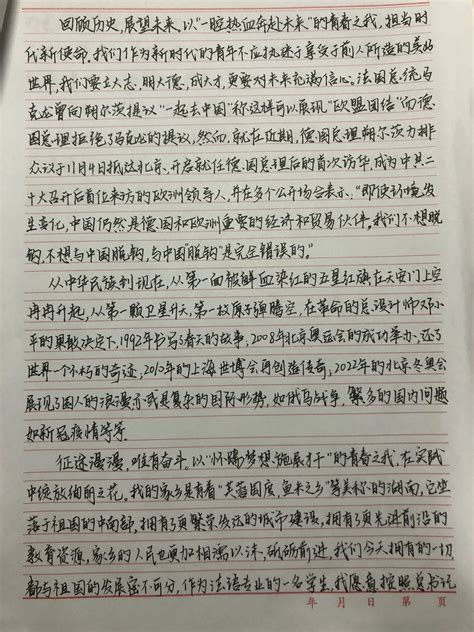 回顾历史，展望未来。以“一腔热血奔赴未来”的青春之我，担当时
代新使命。我们作为新时代的青年不应执迷于享受于前人所造的美好
世界，我们要立大志，明大德，成大才，更要对未来充满信心。法国总统马
克龙曾向朔尔茨提议“一起去中国”称这样可以展现“欧盟团结”而德
国总理拒绝了马克龙的提议，然而，就在近期，德国总理朔尔茨力排
众议于11月4日抵达北京，开启就任德国总理后的首次访华，成为中共二
十大召开后首位来访的欧洲领导人，并在多个公开场合表示：“即使环境发
生变化，中国仍然是德国和欧洲重要的经济和贸易伙伴。我们不想脱
钩，不想与中国脱钩，与中国“脱钩”是完全错误的。”
从中华民族到现在，从第一面被鲜血染红的五星红旗在天安门上空
冉冉升起，从第一颗卫星升天，第一枚原子弹腾空，在革命的总设计师邓小
平的果敢决定下，1992年书写了春天的故事，2008年北京奥运会的成功举办，还了
世界一个不朽的奇迹，2010年的上海世博会再创造传奇，2022年的北京冬奥会
展现了国人的浪漫亦或是复杂的国际形势，如俄乌战争，繁多的国内问题
如新冠疫情等等
征途漫漫，唯有奋斗。以“怀揣梦想、施展才干”的青春之我，在实践
中绽放绚丽之花。我的家乡是有着“芙蓉国度，鱼米之乡”等美称的湖南，它坐
落于祖国的中南部，拥有了更繁荣发达的城市建设，拥有了更先进前沿的
教育资源，家乡的人民也更加相濡以沫，砥砺前进，我们今天拥有的一切
都与祖国的发展密不可分，作为法语专业的一名学生，我愿意按照总书记
年 月 日 第 页